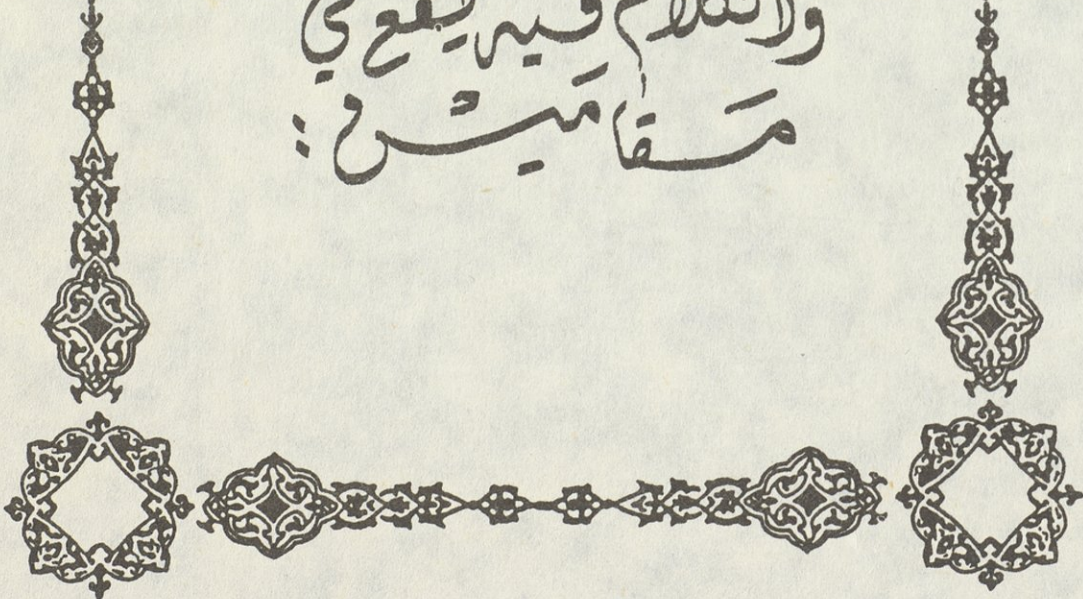 والكلام فيه يقع في
مقامين :